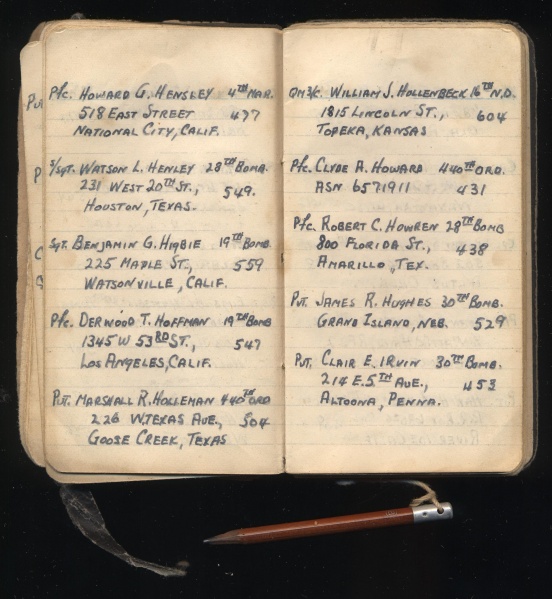 Pfc. HOWARD G. HENSLEY 4TH MAR.
518 EAST STREET 477
NATIONAL CITY, CALIF.
S/SGT. WATSON L. HENLEY 28TH BOMB.
231 WEST 20TH ST., 549.
HOUSTON, TEXAS.
SGT. BENJAMIN G. HIGBIE 19TH BOMB.
225 MAPLE ST., 559
WATSONVILLE, CALIF.
Pfc. DERWOOD T. HOFFMAN 19TH BOMB
1345 W 53RD ST., 547
LOS ANGELES, CALIF.
PVT. MARSHALL R. HOLLEMAN 440TH ORD
226 W. TEXAS AVE., 504
GOOSE CREEK, TEXAS
QM3/c. WILLIAM J. HOLLENBECK 16TH N.D.
1815 LINCOLN ST., 604
TOPEKA, KANSAS
Pfc. CLYDE A. HOWARD 440TH ORD.
ASN 6571911 431
Pfc. ROBERT C. HOWREN 28TH BOMB
800 FLORIDA ST., 438
AMARILLO, TEX.
PVT. JAMES R. HUGHES 30TH BOMB.
GRAND ISLAND, NEB. 529
PVT. CLAIR E. IRVIN 30TH BOMB.
214 E. 5TH AVE., 453
ALTOONA, PENNA.